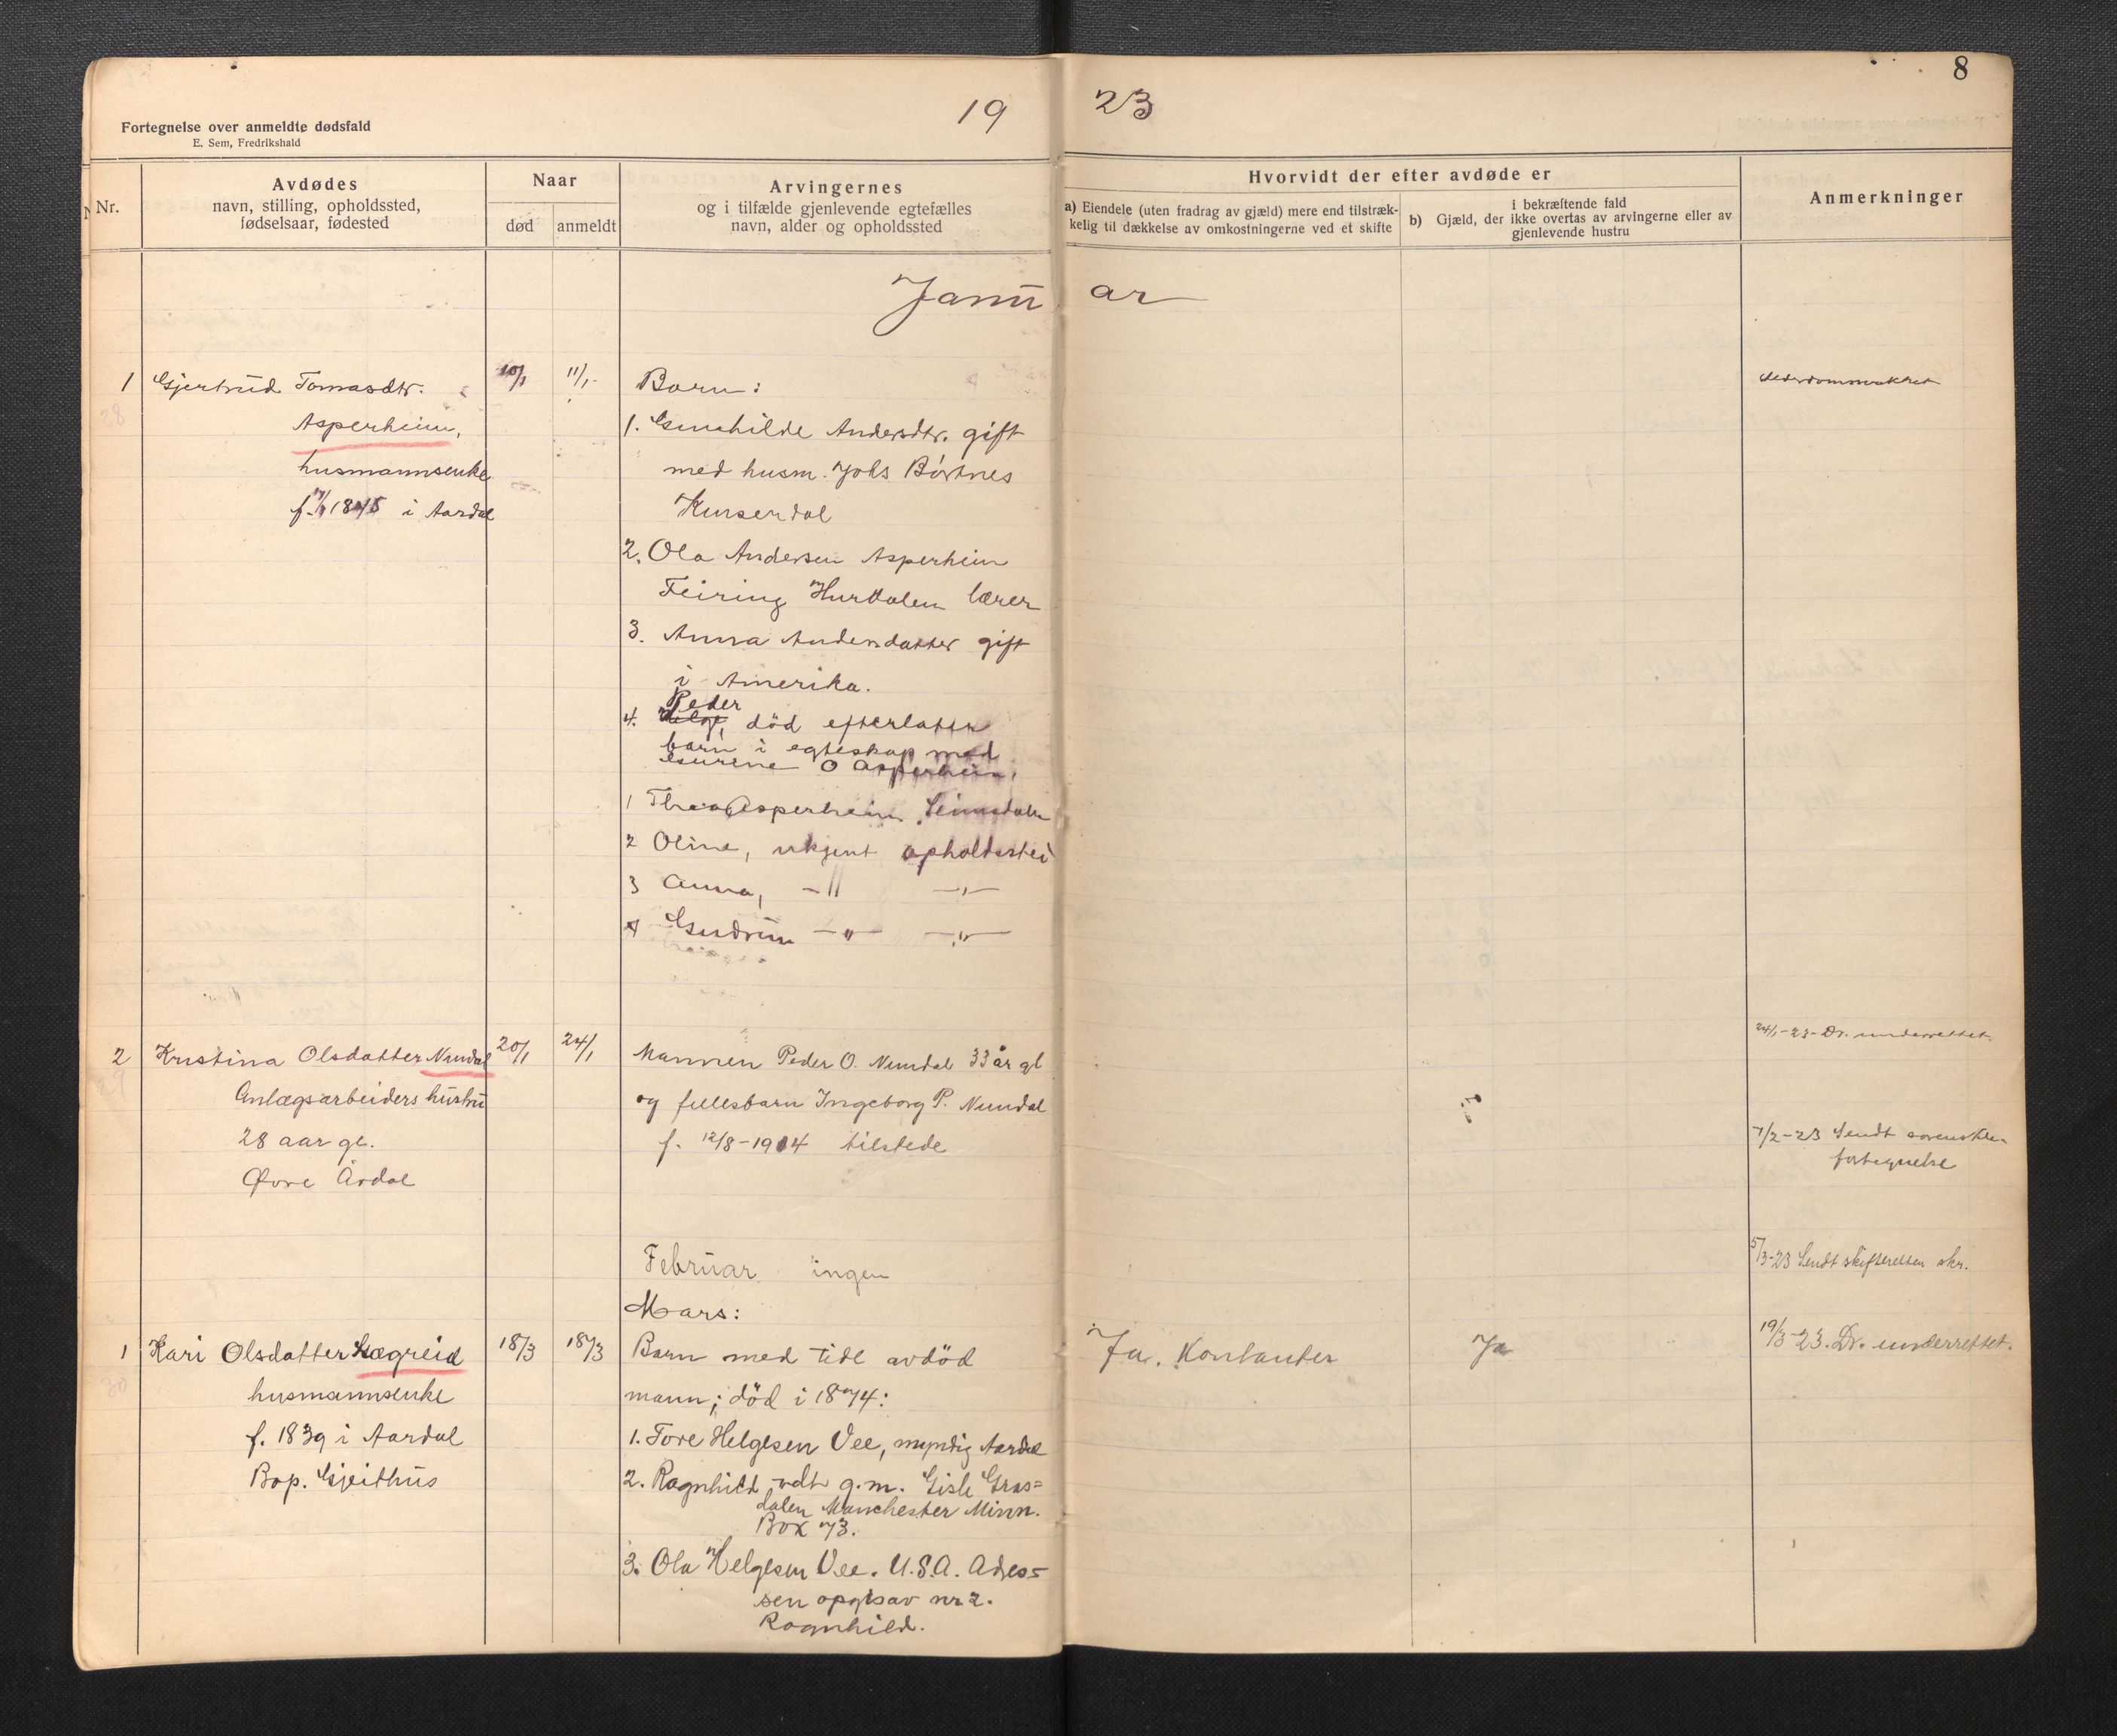 8
19 23
Fortegnelse over anmeldte dødsfald
E. Sem, Fredrikshald
Nr.
Avdødes
navn, stilling, opholdssted,
fødselsaar, fødested
Naar
død
anmeldt
Arvingernes
og i tilfælde gjenlevende egtefælles
navn, alder og opholdssted
Hvorvidt der efter avdøde er
a) Eiendele (uten fradrag av gjæld) mere end tilstræk-
kelig til dækkelse av omkostningerne ved et skifte
i bekræftende fald
b) Gjæld, der ikke overtas av arvingerne eller av
gjenlevende hustru
Anmerkninger
Janu ar
1 Gjertrud Tomasdtr. 10/1 11/1 Barn:
28
Asperheim,
husmannsenke
f. 1845 i Aardal
1. Gunhilde Andersdtr. gift
med husm. Johs Børtnes
2. Ola Andersen Asperheim
Feiring Hurdalen lærer
3. Anna Andersdatter gift
i Amerika.
Peder
4. Helge, död efterlater
barn i egteskap med
O Asperheim,
1 Asperheim
2 Oline, ukjent opholdsste
3 Anna, -〃 -〃-
4 Gudrun -〃- -〃-
2 Kristina Olsdatter Nundal 20/1 24/1 Mannen Peder O. Nundal 33 år gl
24/1-23- Dr. underrettet.
Anlægsarbeiders hustru
og fellesbarn Ingeborg P. Nundal
?
28 aar gl.
f. 12/8-1914 tilstede
7/2-23 Sendt
fortegnelse
Øvre Årdal
Februar ingen
5/3-23 Sendt skifteretten skr.
Mars:
1 Kari Olsdatter Lægreid 18/3 18/3 Barn med tidl avdöd
Ja. Kontanter Ja
19/3-23. Dr. underrettet.
30
husmannsenke
mann; död i 1874:
f. 1839 i Aardal
1. Tore Helgesen Vee, myndig Aardal
Bop. Gjeithus
2. Ragnhild g.m. Gisle Gras=
dalen Manchester Minn.
Box 73.
3. Ola Helgesen Vee. U.S.A. Adres=
sen opgis av nr 2.
Ragnhild.